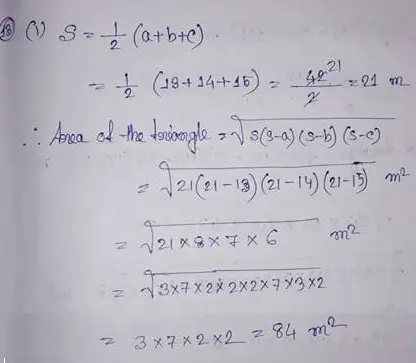 18 (1) S = 1/2 (a+b+c).
= 1/2 (13+14+15) = 42 21/2 = 21 m
∴ Area of the triangle = √S(S-a)(S-b)(S-c)
= √21(21-13)(21-14)(21-15) m²
= √21×8×7×6 m²
= √3×7×2×2×2×7×3×2
= 3×7×2×2 = 84 m²